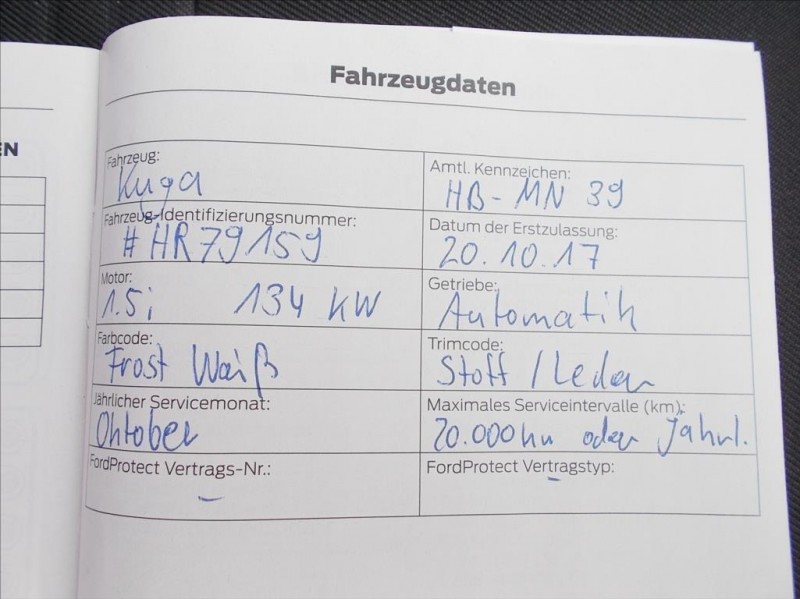 EN
Fahrzeugdaten
Fahrzeug:
Kuga
Amtl. Kennzeichen:
HB-MN 39
Fahrzeug-Identifizierungsnummer:
#HR79159
Datum der Erstzulassung:
20.10.17
Motor:
1.5i 134 KW
Getriebe:
Automatik
Farbcode:
Frost Waiß
Trimcode:
Stoff / Leder
Jährlicher Servicemonat:
Oktober
Maximales Serviceintervalle (km):
20.000km oder Jährl.
FordProtect Vertrags-Nr.:
–
FordProtect Vertragstyp:
–